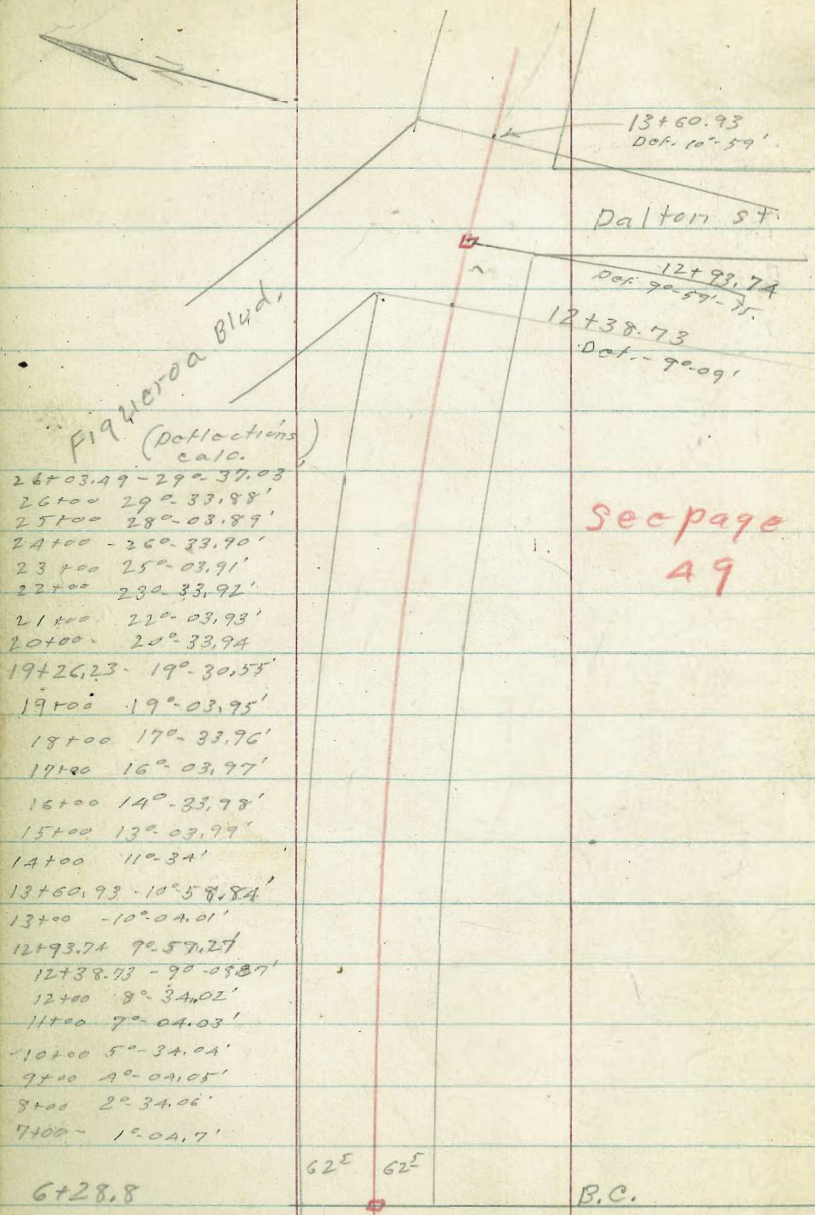 N
13+60.93
Def. 10°-59'
Dalton st.
12+93.74
Def. 9°-59'-15.
12+38.73
Def. - 9°-09'
Figueroa Blvd.
(Deflections
calc.)
26+03.49 - 29°- 37.03'
26+00 29°- 33.88'
25+00 28°- 03.89'
24+00 - 26°- 33.90'
23+00 25°- 03.91'
22+00 23°- 33.92'
21+00 22°- 03.93'
20+00- 20°- 33.94
19+26.23- 19°- 30.55'
19+00 19°- 03.95'
18+00 17°- 33.96'
17+00 16°- 03.97'
16+00 14°- 33.98'
15+00 13°- 03.99'
14+00 11°- 34'
13+60.93 - 10°-58.84'
13+00 - 10°-04.01'
12+93.74 9°-59.27'
12+38.73 - 9°-08.87'
12+00 8°- 34.02'
11+00 7°- 04.03'
10+00 5°- 34.04'
9+00 4°- 04.05'
8+00 2°- 34.06'
7+00 - 1°-04.7'
See page
49
62⁵ 62⁵
6+28.8 B.C.